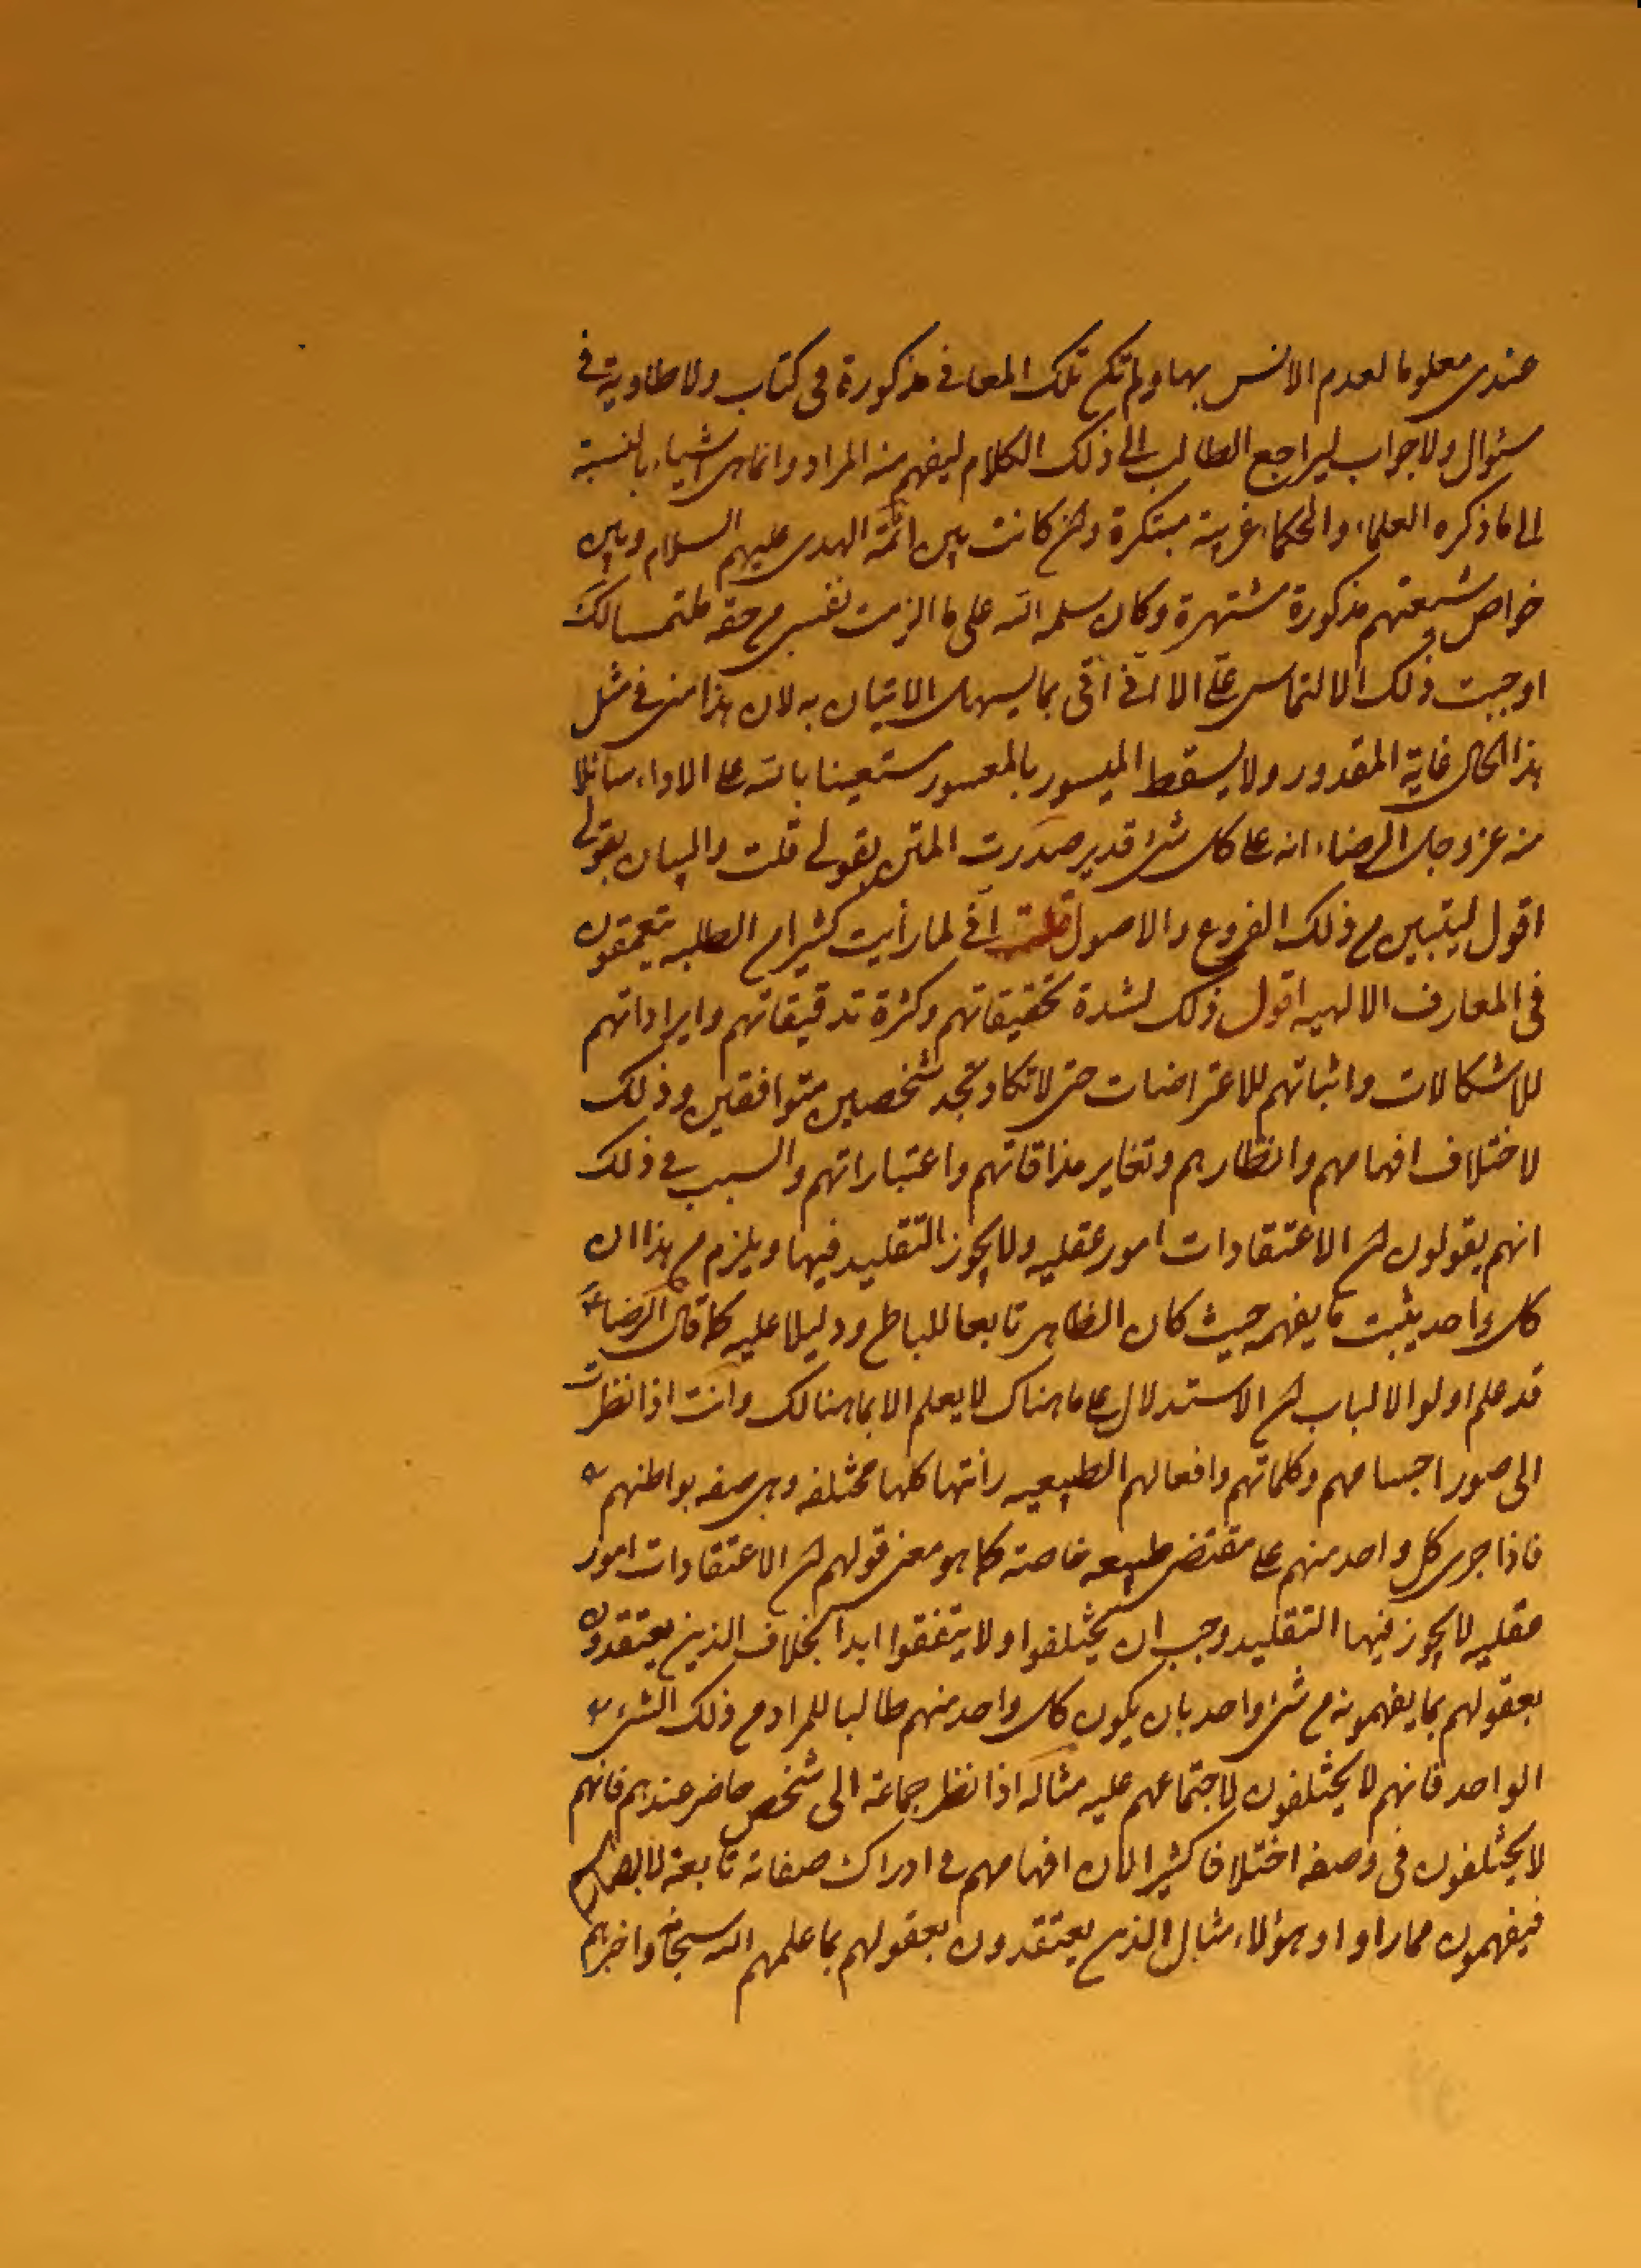 عندى معلوما لعدم الانس بها ولم تكن تلك المعانى مذكورة فى كتاب ولا مطاوية فى
سئوال ولا جواب ليراجع الطالب الى ذلك الكلام ليفهم منه المراد وانما هى اشياء بالنسبة
الى ما ذكره العلماء والحكماء غريبة مبتكرة وان كانت بين ائمة الهدى عليهم السلام وبين
خواص شيعتهم مذكورة مشتهرة وكان سلمه الله على ما الزمت نفسى من حقه ملتمسا لك
اوجبت ذلك الالتماس على الا انى اتى بما يسهل الاتيان به لان هذا منى فى مثل
هذا الحال غاية المقدور ولا يسقط الميسور بالمعسور مستعينا بالله على الاداء سائلا
منه عز وجل الرضاء انه على كل شئ قدير صدرت المتن بقولى قلت والبيان بقولى
اقول ليتبين من ذلك الفروع والاصول قلت انى لما رأيت كثيرا من الطلبه يتعمقون
فى المعارف الالهيه اقول ذلك لشدة تحقيقاتهم وكثرة تدقيقاتهم وايراداتهم
للاشكالات واثباتهم للاعتراضات حتى لا تكاد تجد شخصين متوافقين وذلك
لاختلاف افهامهم وانظارهم وتغاير مذاقاتهم واعتباراتهم والسبب فى ذلك
انهم يقولون ان الاعتقادات امور عقليه ولا يجوز التقليد فيها ويلزم من هذا ان
كل واحد يثبت ما يفهم حيث كان الظاهر تابعا للباطن ودليلا عليه كما قال الرضا ع
قد علم اولوا الالباب ان الاستدلال على ما هناك لا يعلم الا بما هنالك وانت اذا نظرت
الى صور اجسامهم وكلماتهم وافعالهم الطبيعيه رأتها كلها مختلفه وهى صفه بواطنهم
فاذا جرى كل واحد منهم على مقتضى طبيعه خاصته كما هو معنى قولهم ان الاعتقادات امور
عقليه لا يجوز فيها التقليد وجب ان يختلفوا ولا يتفقوا ابدا بخلاف الذين يعتقدون
بعقولهم بما يفهمونه من شئ واحد بان يكون كل واحد منهم طالبا للمراد من ذلك الشئ
الواحد فانهم لا يختلفون لاجتماعهم عليه مثاله اذا نظر جماعة الى شخص حاضر عندهم فانهم
لا يختلفون فى وصفه اختلافا كثيرا لان افهامهم فى ادراك صفاته تابعة لابصارهم
فيفهمون مما راوا وهؤلاء مثال الذين يعتقدون بعقولهم بما علمهم الله سبحانه واخبرهم